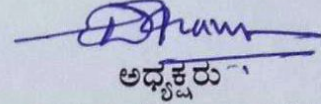 ಅಧ್ಯಕ್ಷರು